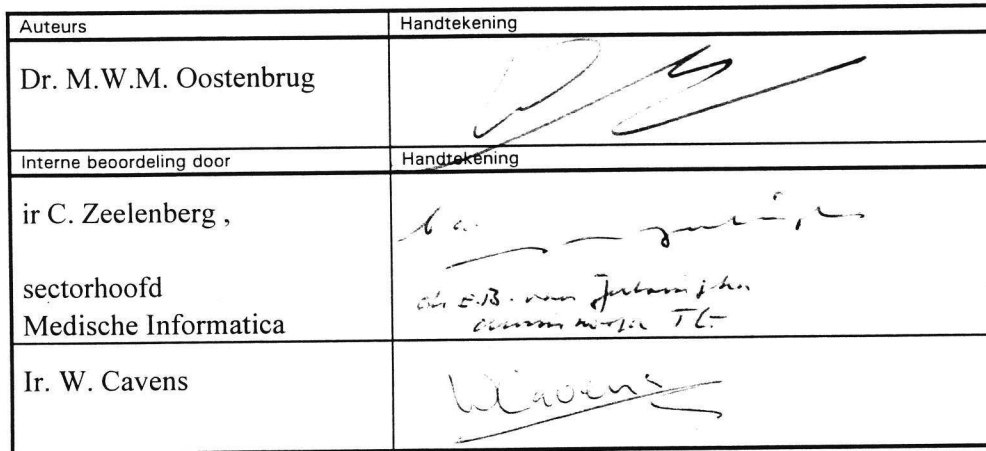 Auteurs Handtekening
Dr. M.W.M. Oostenbrug
Interne beoordeling door Handtekening
ir C. Zeelenberg ,
b.a.
sectorhoofd
Medische Informatica
E.B. van
Ir. W. Cavens
WCavens